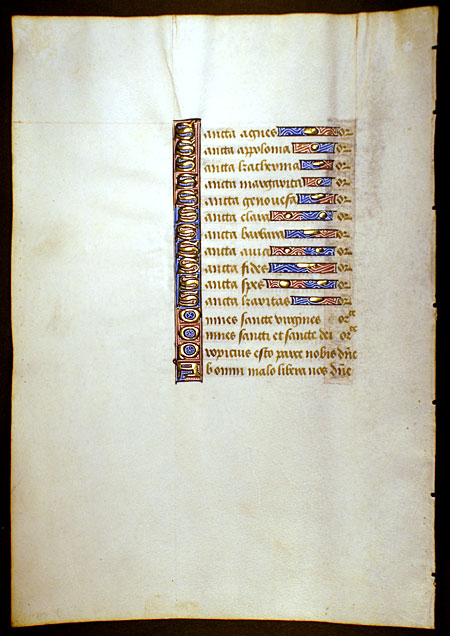 Sancta agnes or
Sancta appolonia or
Sancta katherina or
Sancta margarita or
Sancta genovefa or
Sancta clara or
Sancta barbara or
Sancta auia or
Sancta fides or
Sancta spes or
Sancta karitas or
Omnes sancte virgines orte
Omnes sancti et sancte dei orte
Propicius esto parce nobis dñe
Ab omni malo libera nos dñe